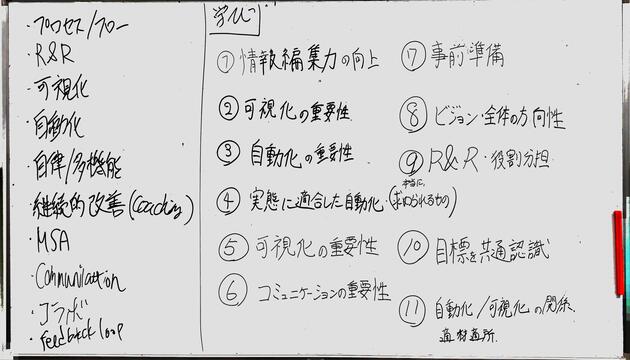 ・プロセス/フロー
・R&R
・可視化
・自動化
・自律/多機能
・継続的改善(Coaching)
・MSA
・Communication
・コラボ
・feedback loop
学び
① 情報編集力の向上
② 可視化の重要性
③ 自動化の重要性
④ 実態に適合した自動化・(本当に求められるもの)
⑤ 可視化の重要性
⑥ コミュニケーションの重要性
⑦ 事前準備
⑧ ビジョン・全体の方向性
⑨ R&R・役割分担
⑩ 目標を共通認識
⑪ 自動化/可視化の関係、
適材適所、